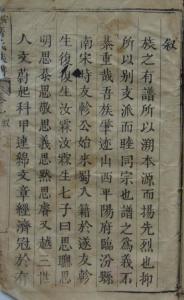 叙
族之有譜所以溯本源而揚先烈也抑
所以别支派而睦同宗也譜之為義不
綦重哉吾族肇迹山西平陽府臨汾縣
南宋時友軫公始來蜀入籍於遂友軫
生復生汝霖汝霖生七子曰思聰思
明思恭思敬思義思黙思睿又越三世
人文蔚起科甲連綿文章經濟冠於